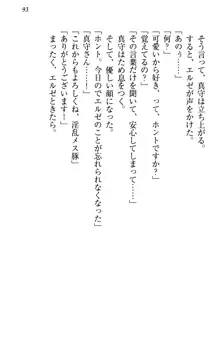 93
そう言って、真守は立ち上がる。
すると、エルゼが声をかけた。
「あのぅ……」
「何？」
「可愛いから好き、って、ホントですか？」
「覚えてるの？」
「その言葉だけは、安心してしまって……」
真守はため息をつく。
そして、優しい顔になった。
「ホント。今日のでエルゼのことが忘れられなくなった」
「真守さん……！」
「これからもよろしくね、淫乱メス豚」
「ありがとうございます！」
エルゼときたら。